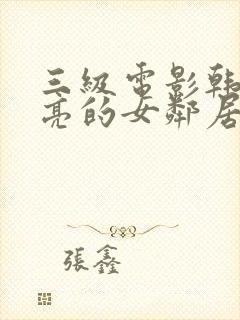 三級電影韩
亮的女鄰居
張鑫